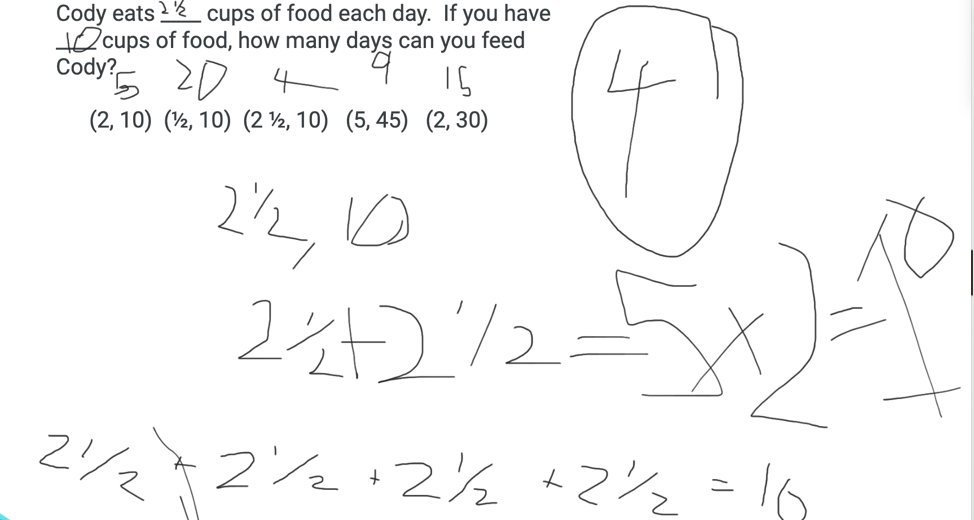 Cody eats 2 ½ cups of food each day. If you have
10 cups of food, how many days can you feed
Cody?
5 20 4 9 15
(2, 10) (½, 10) (2 ½, 10) (5, 45) (2, 30)
4
2 ½, 10
2 ½ + 2 ½ = 5 x 2 = 10
2 ½ + 2 ½ + 2 ½ + 2 ½ = 10